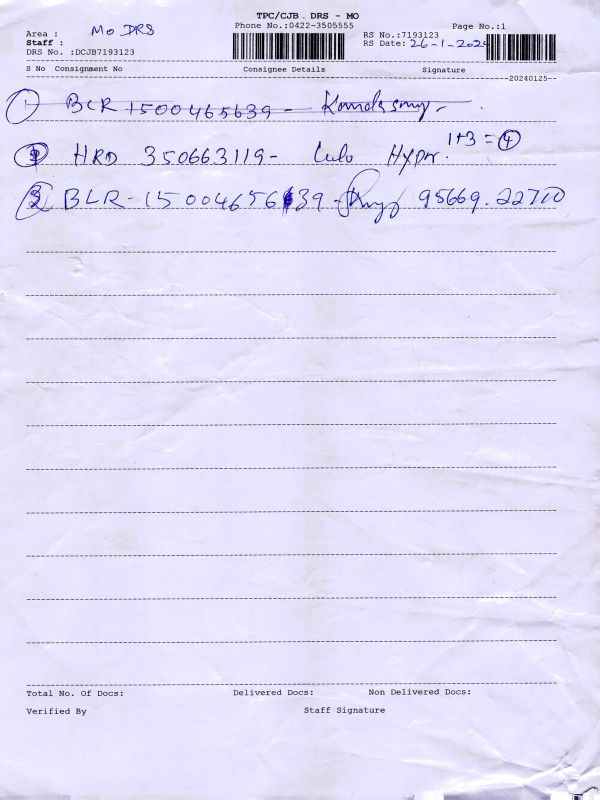 TPC/CJB . DRS - MO
Phone No.:0422-3505555 Page No.:1
Area : MO DRS
RS No.:7193123
Staff :
RS Date: 26-1-2024
DRS No. :DCJB7193123
S No Consignment No Consignee Details Signature
20240125--
1 BLR 1500465639 -
1+3 = 4
HRD 350663119- Lulu Hyper.
3 BLR - 1500465639 - 95669.22710
Total No. Of Docs: Delivered Docs: Non Delivered Docs:
Verified By Staff Signature